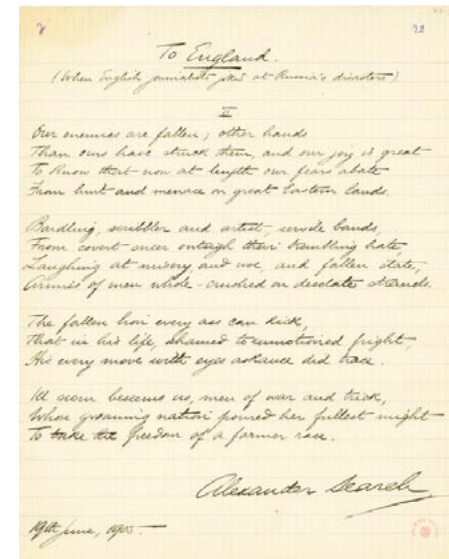 To England.
(When English journalists joked at Russia's disasters)
II
Our enemies are fallen; other hands
Than ours have struck them, and our joy is great
To know that now at length our fears abate
From hurt and menace on great Eastern lands.
Bardling, scribbler and artist, servile bands,
From covert sneer outsigh their trembling hate,
Laughing at misery and woe, and fallen state,
Armies of men whole-crushed on desolate strands.
The fallen lion every ass can kick,
That in his life, shamed to unmotioned fright,
His every move with eyes askance did trace.
Ill scorn beseems us, men of war and trick,
Whose groaning nation poured her fullest might
To take the freedom of a farmer race.
Alexander Search
19th June, 1905.